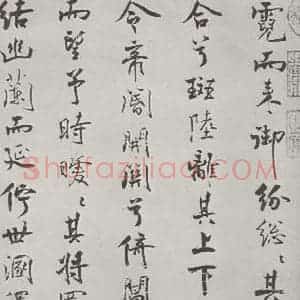 霓而来御紛総〻其
合兮斑陸離其上下
令帝閽開關兮倚閶
而望予時曖〻其將
結幽蘭而延佇世溷
Shufaziliao.COM